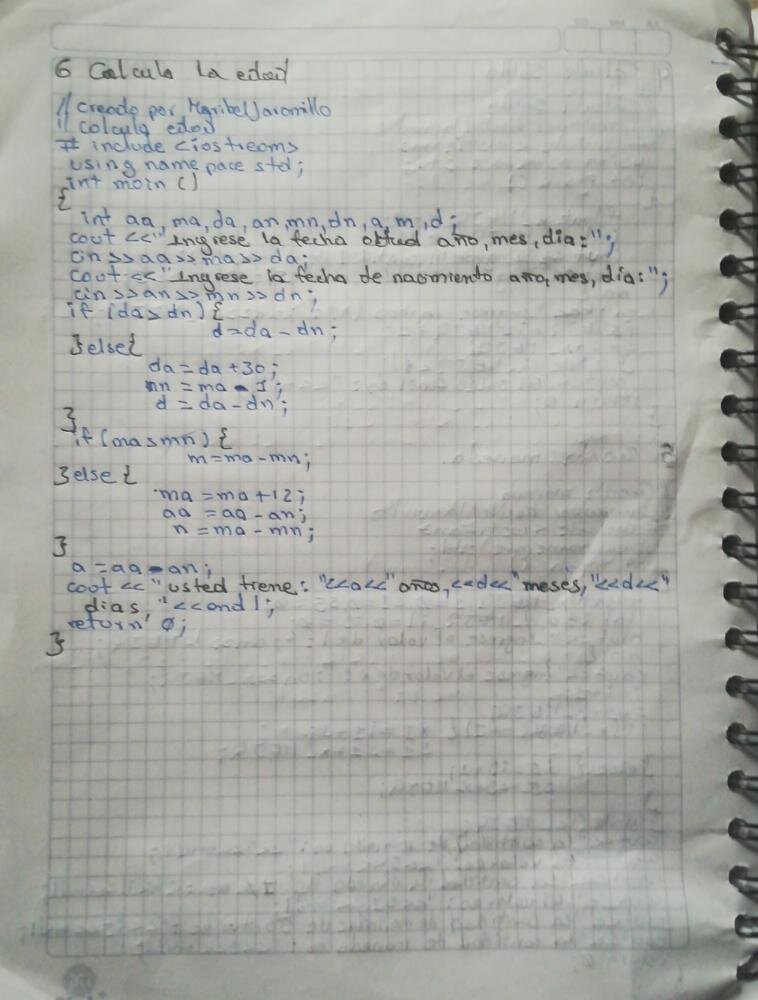 6 Calcula la edad
// creado por Maribel Jaramillo
// calcula edad
# include <iostream>
using name pace std;
int main ()
{
int aa, ma, da, an, mn, dn, a, m, d;
cout << "Ingrese la fecha año, mes, dia: ";
cin >> aa >> ma >> da;
cout << "Ingrese la fecha de nacimiento año, mes, dia: ";
cin >> an >> mn >> dn;
if (da > dn) {
d = da - dn;
} else {
da = da + 30;
mn = ma - 1;
d = da - dn;
}
if (ma > mn) {
m = ma - mn;
} else {
ma = ma + 12;
aa = aa - an;
n = ma - mn;
}
a = aa - an;
cout << "usted tiene: "<<a<<" años, <<d<<" meses, "<<d<<"
dias, "<<endl;
return 0;
}